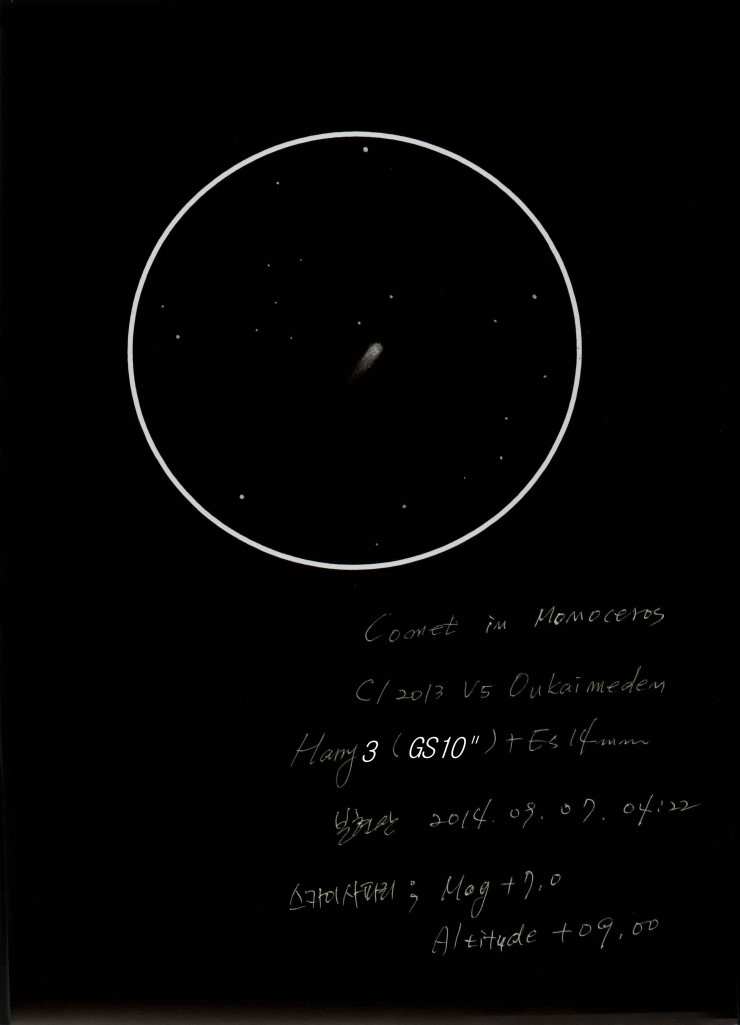 Comet in Monoceros
C/2013 V5 Oukaimeden
Harry 3 (GS10") + Es 14mm
2014. 09. 07. 04:22
스카이사파리 ; Mag +7.0
Altitude +09.00